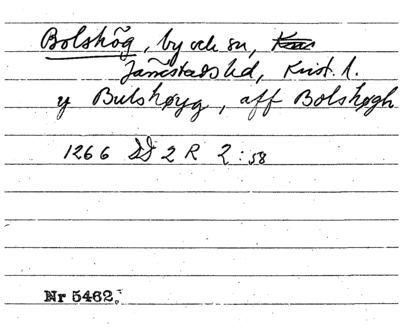 Bolshög, by och sn,
Järrestads hd, Krist. l.
y Bulshøyg, aff Bolshøgh
1266 DD 2 R 2:58
Nr 5462.